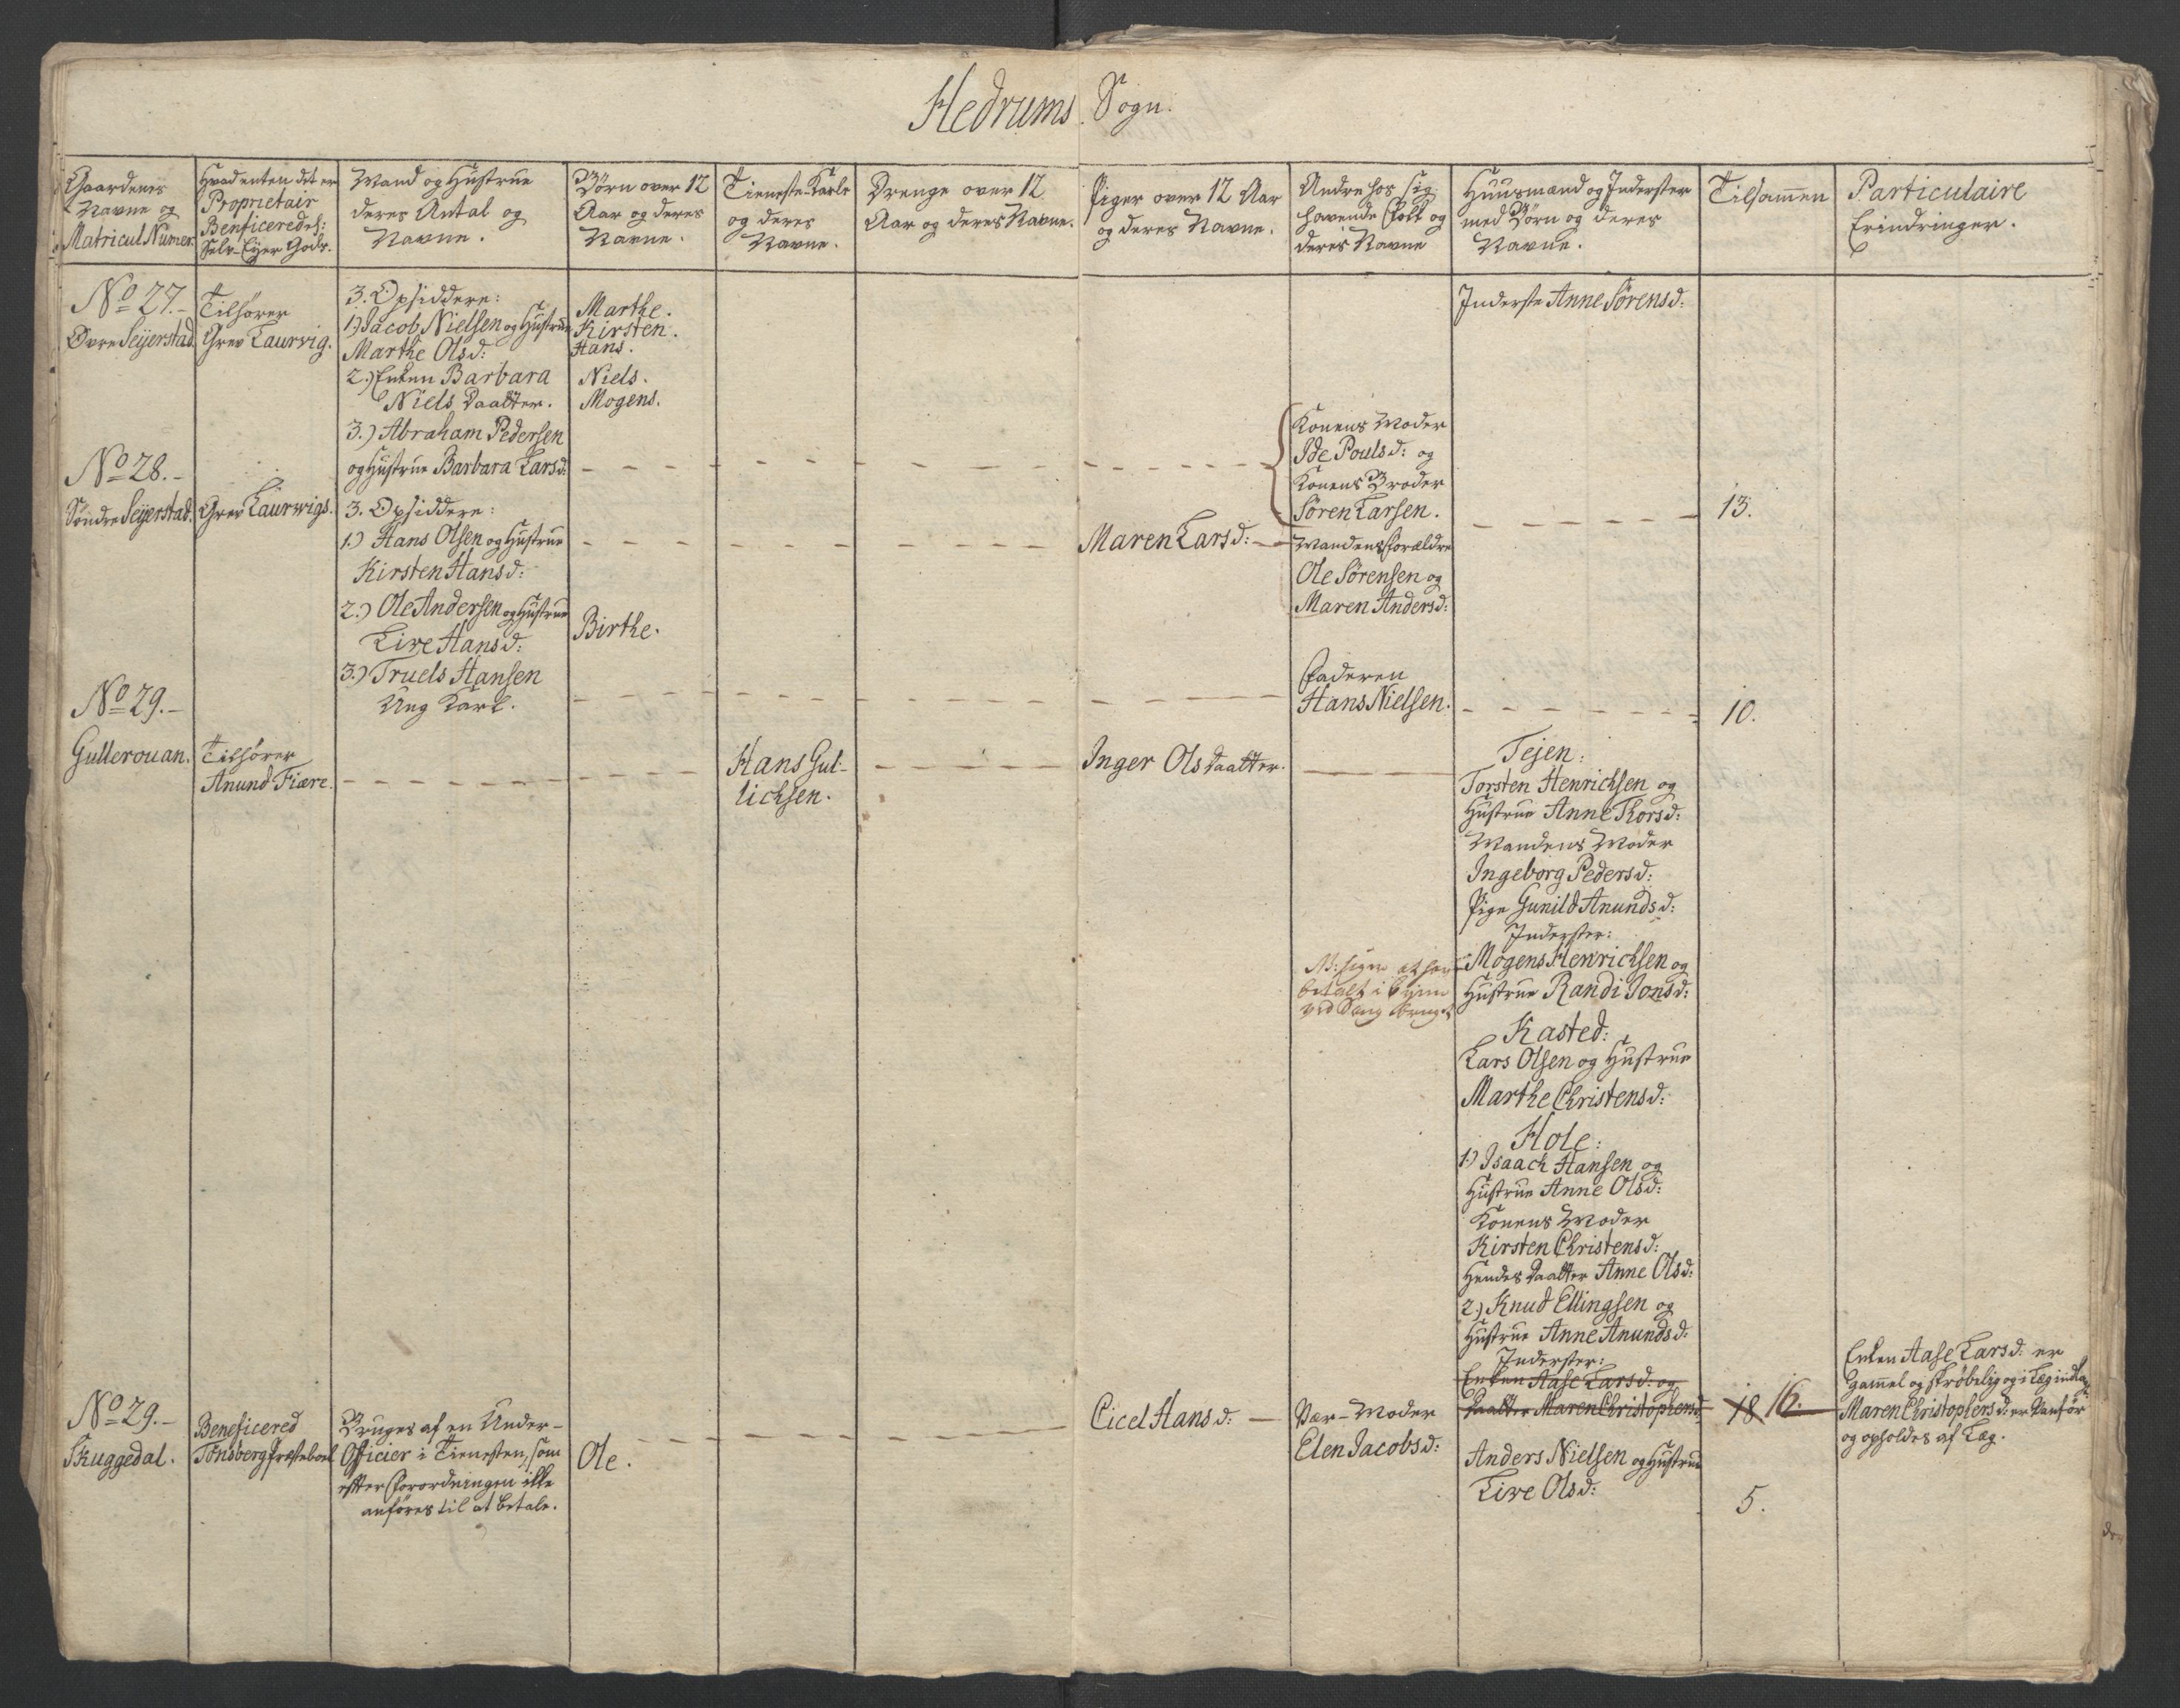 Hedrums Sogn.
Gaardenes
Navne og
Matricul Numer.
Hvad enten det er
Proprietair
Benficered el:
Selv-Eyer Gods.
Mand og Hustrue
deres Antal og
Navne.
Børn over 12
Aar og deres
Navne.
Tieneste Karle
og deres
Navne.
Drenge over 12
Aar og deres Navne.
Piger over 12 Aar
og deres Navne.
Andre hos sig
havende Folk og
deres Navne
Huusmænd og Inderster
med Børn og deres
Navne.
Tilsam̄en
Particulaire
Erindringer.
No 27.-
Øvre Seijerstad
Tilhører
Grev Laurvig.
3. Opsiddere:
1.) Jacob Nielsen og Hustrue
Marthe Olsd:
2.) Enken Barbara
Niels Daatter.
3.) Abraham Pedersen
og Hustrue Barbara Larsd:
Marthe.
Kirsten.
Hans.
Niels.
Mogens.
Konens Moder
Ide Poulsd: og
Konens Broder
Søren Larsen.
Inderste Anne Sørensd:
13.
No 28.-
Søndre Seijerstad.
Grev Laurwigs.
3. Opsiddere:
1.) Hans Olsen og Hustrue
Kirsten Hansd:
2.) Ole Andersen og Hustrue
Live Hansd:
3.) Truels Hansen
Ung Karl.
Birthe.
Maren Larsd:
Mandens Forældre
Ole Sørensen og
Maren Andersd:
Faderen
Hans Nielsen.
10.
No 29.-
Gullerouan.
Tilhører
Anund Fiære.
Hans Gul-
lichsen.
Inger Ols Daatter.
Tejen:
Torsten Henrichsen og
Hustrue Anne Thorsd:
Mandens Moder
Ingeborg Pedersd:
Pige Gunild Anundsd:
Inderster:
Mogens Henrichsen og
Hustrue Randi Jonsd:
betalt i
Kasted:
Lars Olsen og Hustrue
Marthe Christensd:
Hole:
1.) Isaach Hansen og
Hustrue Anne Olsd:
Konens Moder
Kirsten Christensd:
Hendes Daatter Anne Olsd:
2.) Knud Ellingsen og
Hustrue Anne Anundsd:
Inderster:
Enken Aase Larsd: og
Daatter Maren Christophersd:
18 16.
Enken Aase Larsd: er
gam̄el og skrøbelig og i Læg indlagt
Maren Christophersd: er Vanfør
og opholdes af Læg.
No 29.-
Skuggedal.
Beneficered
Tønsberg Præsteboel
Bruges af en Under-
Officier i Tienesten, som
efter Forordningen ikke
anføres til at betale.
Ole.
Cicel Hansd:
Vær-Moder
Elen Jacobsd:
Anders Nielsen og Hustrue
Live Olsd:
5.